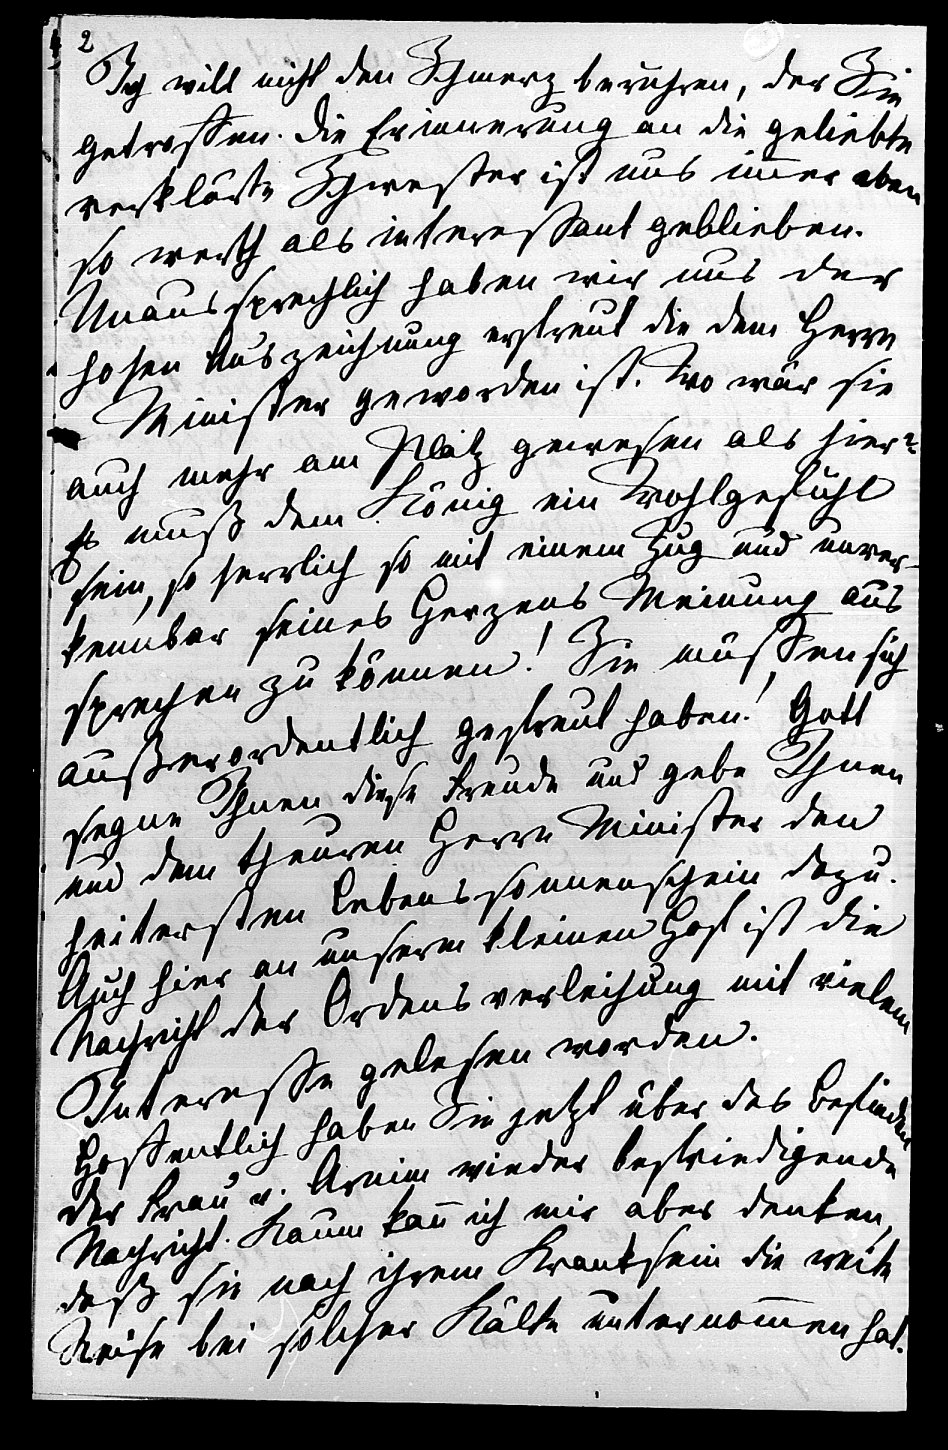 2
Ich will nicht den Schmerz berühren, der Sie
getroffen. Die Erinnerung an die geliebte
verklärte Schwester ist uns im̅er eben
so werth als interessant geblieben.
Unaussprechlich haben wir uns der
hohen Auszeichnung erfreut die dem Herrn
Minister geworden ist. Wo wär sie
auch mehr am Platz gewesen als hier?
Es muß dem König ein Wohlgefühl
sein, so herrlich so mit einem Zug und unver-
kennbar seines Herzens Meinung aus
sprechen zu können! Sie müssen sich
außerordentlich gefreut haben! Gott
segne Ihnen diese Freude und gebe Ihnen
und dem theuren Herrn Minister den
heitersten Lebenssonnenschein dazu.
Auch hier an unserm kleinen Hof ist die
Nachricht der Ordensverleihung mit vielem
Interesse gelesen worden.
Hoffentlich haben Sie jetzt über das Befinden
der Frau v. Arnim wieder befriedigende
Nachricht. Kaum kan̅ ich mir aber denken,
daß sie nach ihrem Kranksein die weite
Reise bei solcher Kälte unternom̅en hat.